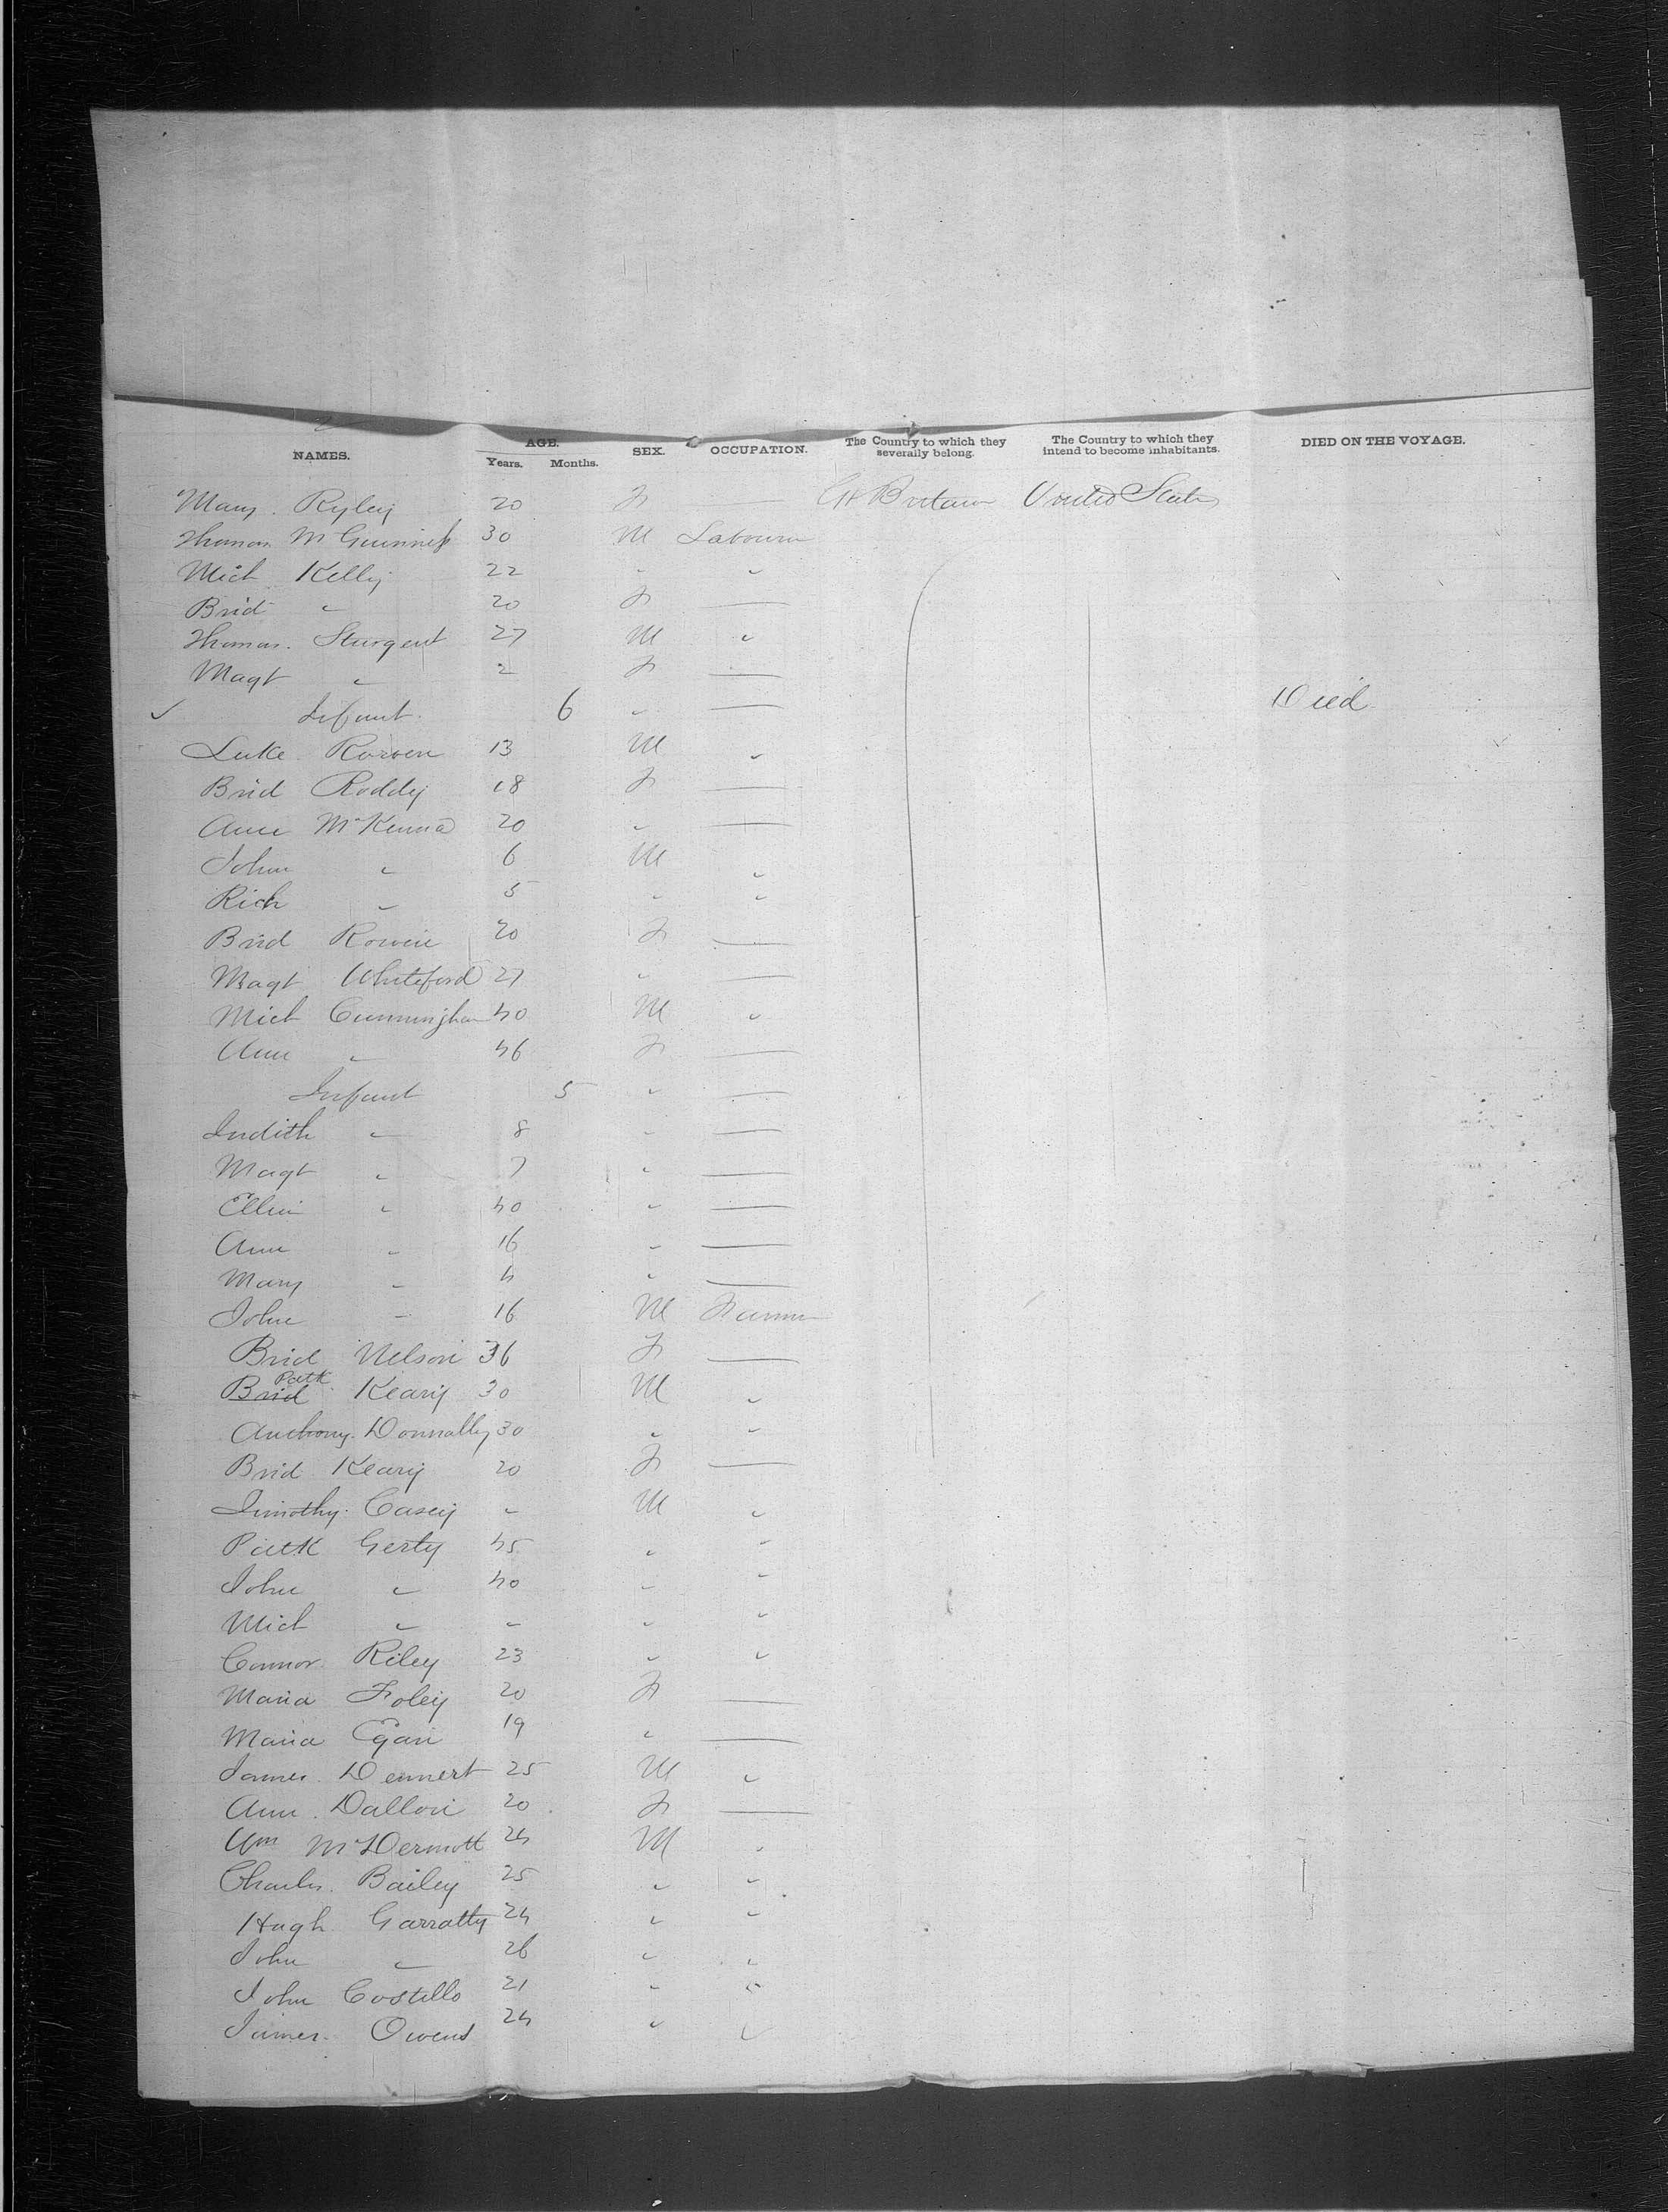 2
NAMES. AGE. Years. Months. SEX. OCCUPATION. The Country to which they severally belong. The Country to which they intend to become inhabitants. DIED ON THE VOYAGE.
Mary Ryley 20 F — Gt Britain United States
Thomas McGuinness 30 M Labourer
Mich Kelly 22 " "
Brid " 20 F —
Thomas Sturgent 27 M "
Magt " 2 F —
✓ Infant 6 " — Died
Luke Rowen 13 M "
Brid Roddy 18 F —
Ann McKenna 20 " —
John " 6 M "
Rich " 5 " "
Brid Rowen 20 F —
Magt Whiteford 27 " —
Mich Cunningham 40 M "
Ann " 46 F —
Infant 5 " —
Judith " 8 " —
Magt " 7 " —
Ellin " 40 " —
Ann " 16 " —
Mary " 4 " —
John " 16 M Farmer
Brid Nelson 36 F —
Patk
Brid Keary 30 M "
Anthony Donnally 30 " "
Brid Keary 20 F —
Timothy Casey " M "
Patk Gerty 45 " "
John " 40 " "
Mich " " " "
Connor Riley 23 " "
Maria Foley 20 F —
Maria Egan 19 " —
James Dennert 25 M "
Ann Dallon 20 F —
Wm McDermott 24 M "
Charles Bailey 25 " "
Hugh Garratty 24 " "
John " 26 " "
John Costillo 21 " "
James Owens 24 " "